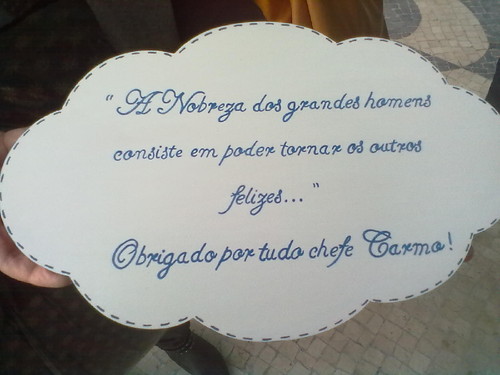 " A Nobreza dos grandes homens
consiste em poder tornar os outros
felizes... "
Obrigado por tudo chefe Carmo!